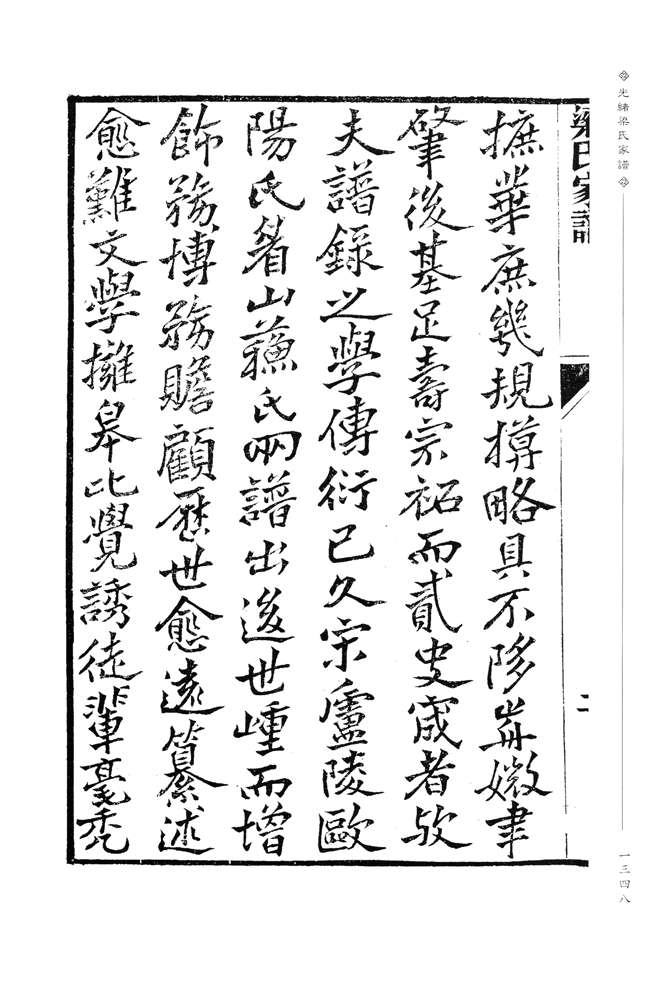 光緒梁氏家譜
一三四八
梁氏家譜
二
摭華庶幾規撙略具不陊歬媺聿
肈後基足壽宗祏而貳史宬者歟
夫譜錄之學傳衍已久宋廬陵歐
陽氏眉山蘓氏兩譜出後世崷而增
飾務博務贍顧歷世愈遠纂述
愈難文學擁皋比覺誘徒輩毫禿